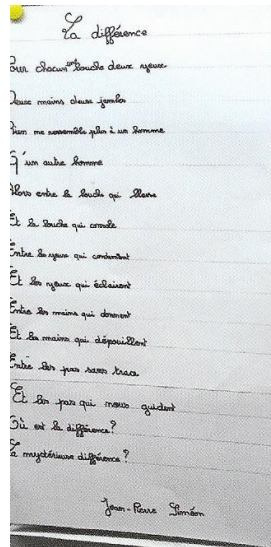 La différence
Pour chacun une bouche deux yeux
Deux mains deux jambes
Rien ne ressemble plus à un homme
Qu'un autre homme
Alors entre la bouche qui blesse
Et la bouche qui console
Entre les yeux qui condamnent
Et les yeux qui éclairent
Entre les mains qui donnent
Et les mains qui dépouillent
Entre les pas sans trace
Et les pas qui nous guident
Où est la différence?
La mystérieuse différence?
Jean-Pierre Siméon